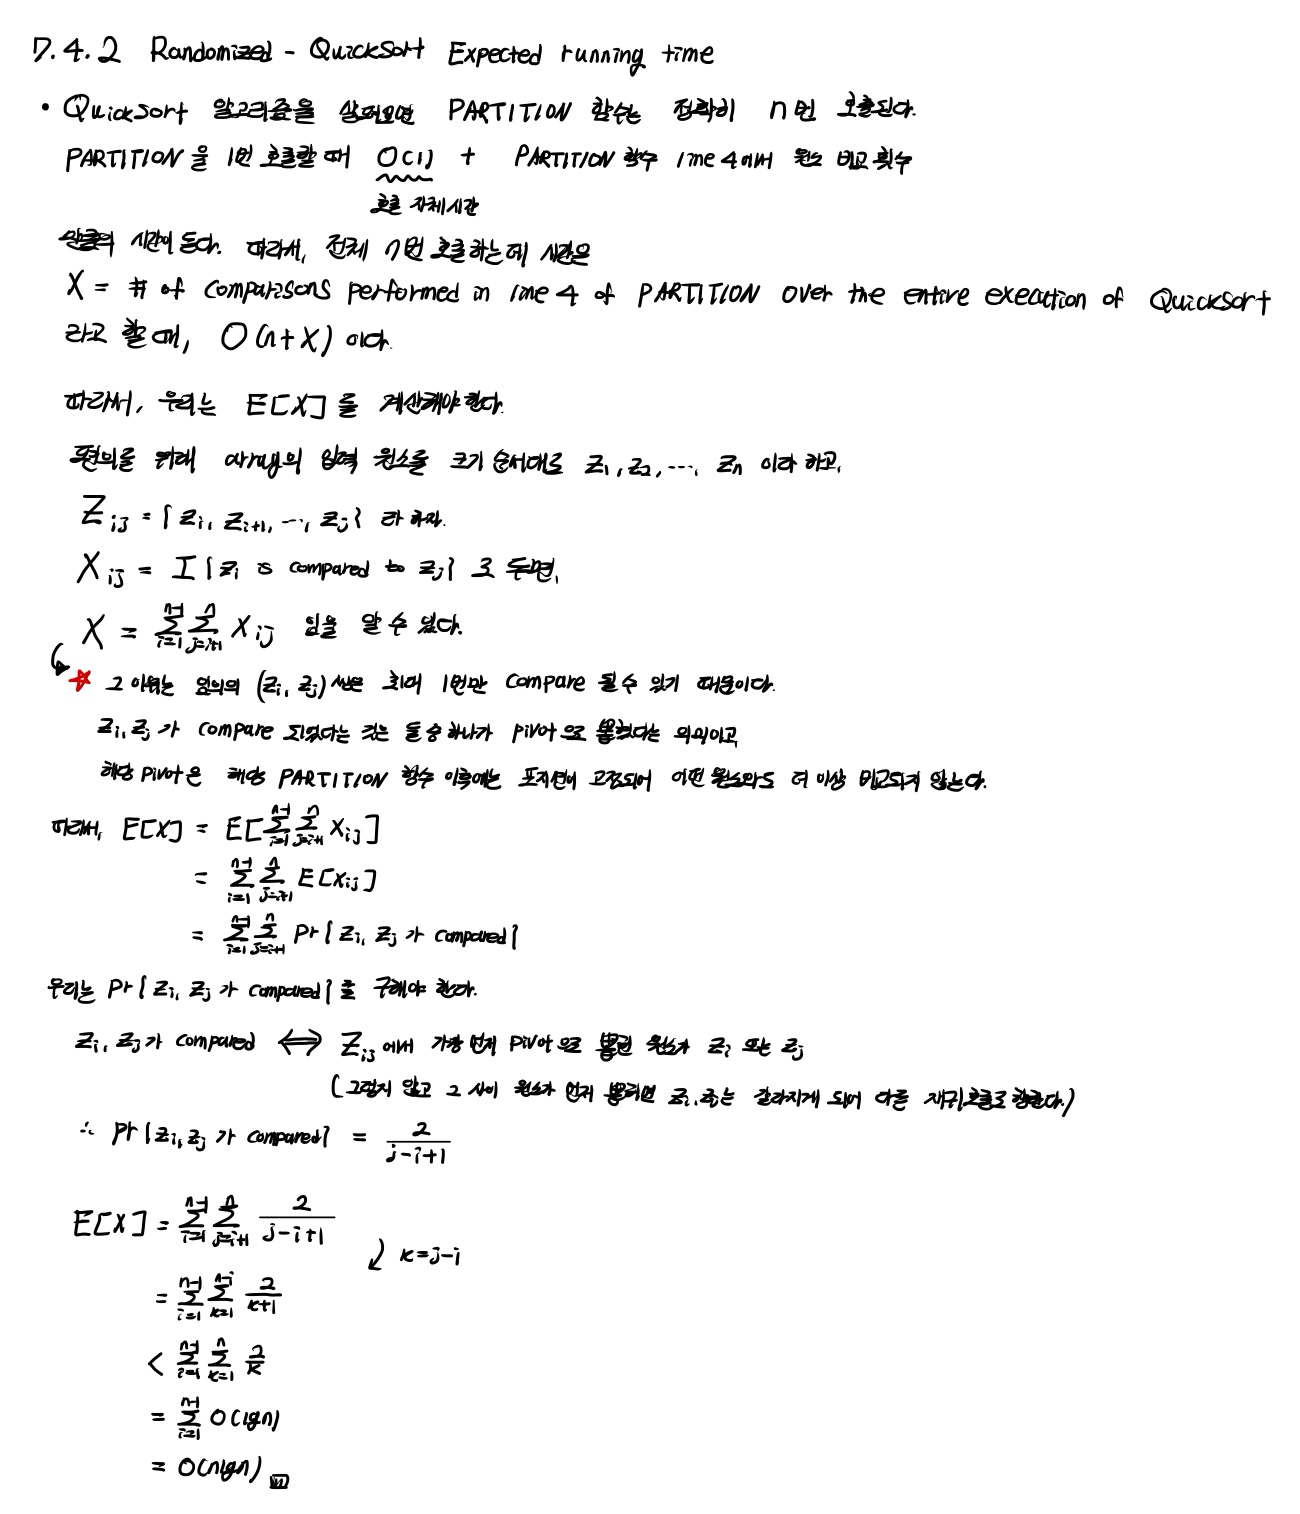 7.4.2 Randomized - QuickSort Expected running time
• QuickSort 알고리즘을 살펴보면 PARTITION 함수는 정확히 n번 호출된다.
PARTITION을 1번 호출할 때 O(1) + PARTITION 함수 line 4에서 원소 비교 횟수
호출 자체시간
만큼의 시간이 든다. 따라서, 전체 n번 호출하는데 시간은
X = # of comparisons performed in line 4 of PARTITION over the entire execution of QuickSort
라고 할 때, O(n+X) 이다.
따라서, 우리는 E[X]를 계산해야 한다.
편의를 위해 array의 입력 원소를 크기 순서대로 z₁, z₂, ..., zₙ 이라 하고,
Z_ij = {z_i, z_i+1, ..., z_j} 라 하자.
X_ij = I{z_i is compared to z_j} 로 두면,
X = Σ_{i=1}^{n-1} Σ_{j=i+1}^{n} X_ij 임을 알 수 있다.
☆ 그 이유는 임의의 (z_i, z_j) 쌍은 최대 1번만 compare 될 수 있기 때문이다.
z_i, z_j가 compare 되었다는 것는 둘 중 하나가 pivot으로 뽑혔다는 의미이고,
해당 pivot은 해당 PARTITION 함수 이후에는 포지션이 고정되어 어떤 원소와도 더 이상 비교되지 않는다.
따라서, E[X] = E[Σ_{i=1}^{n-1} Σ_{j=i+1}^{n} X_ij]
= Σ_{i=1}^{n-1} Σ_{j=i+1}^{n} E[X_ij]
= Σ_{i=1}^{n-1} Σ_{j=i+1}^{n} Pr{z_i, z_j가 compared}
우리는 Pr{z_i, z_j가 compared}를 구해야 한다.
z_i, z_j가 compared ⟺ Z_ij에서 가장 먼저 pivot으로 뽑힌 원소가 z_i 또는 z_j
(그렇지 않고 그 사이 원소가 먼저 뽑히면 z_i, z_j는 갈라지게 되어 다른 재귀호출로 향한다.)
∴ Pr{z_i, z_j가 compared} = 2/(j-i+1)
E[X] = Σ_{i=1}^{n-1} Σ_{j=i+1}^{n} 2/(j-i+1)
k=j-i
= Σ_{i=1}^{n-1} Σ_{k=1}^{n-i} 2/(k+1)
< Σ_{i=1}^{n-1} Σ_{k=1}^{n} 2/k
= Σ_{i=1}^{n-1} O(lgn)
= O(nlgn)